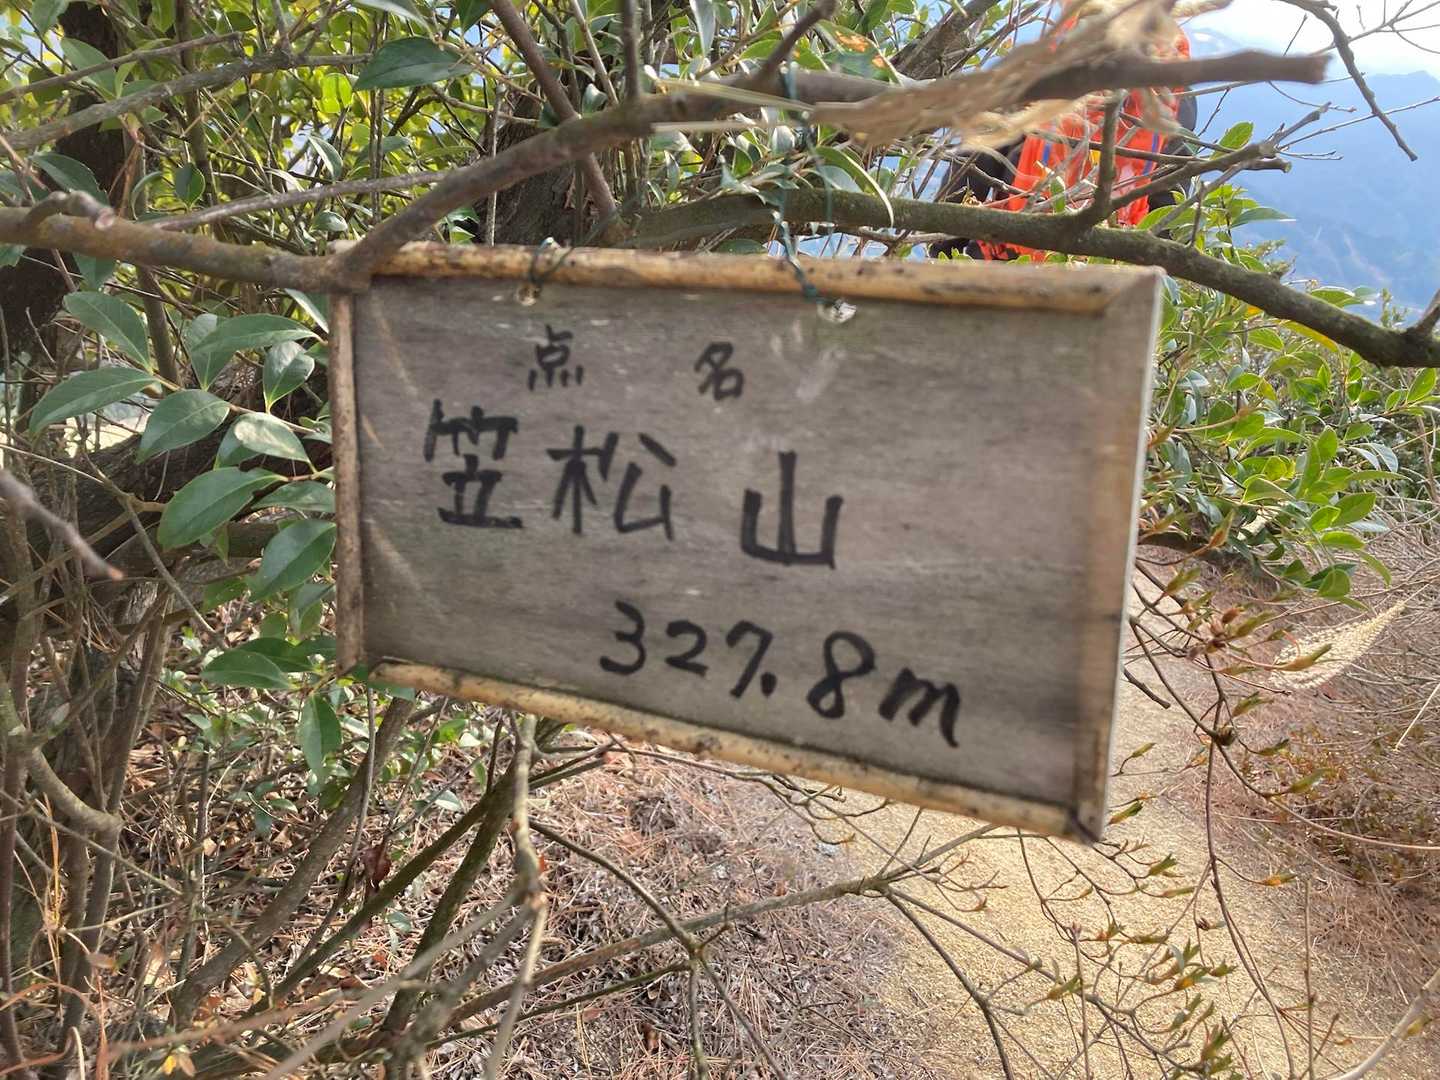 点名
笠松山
327.8m